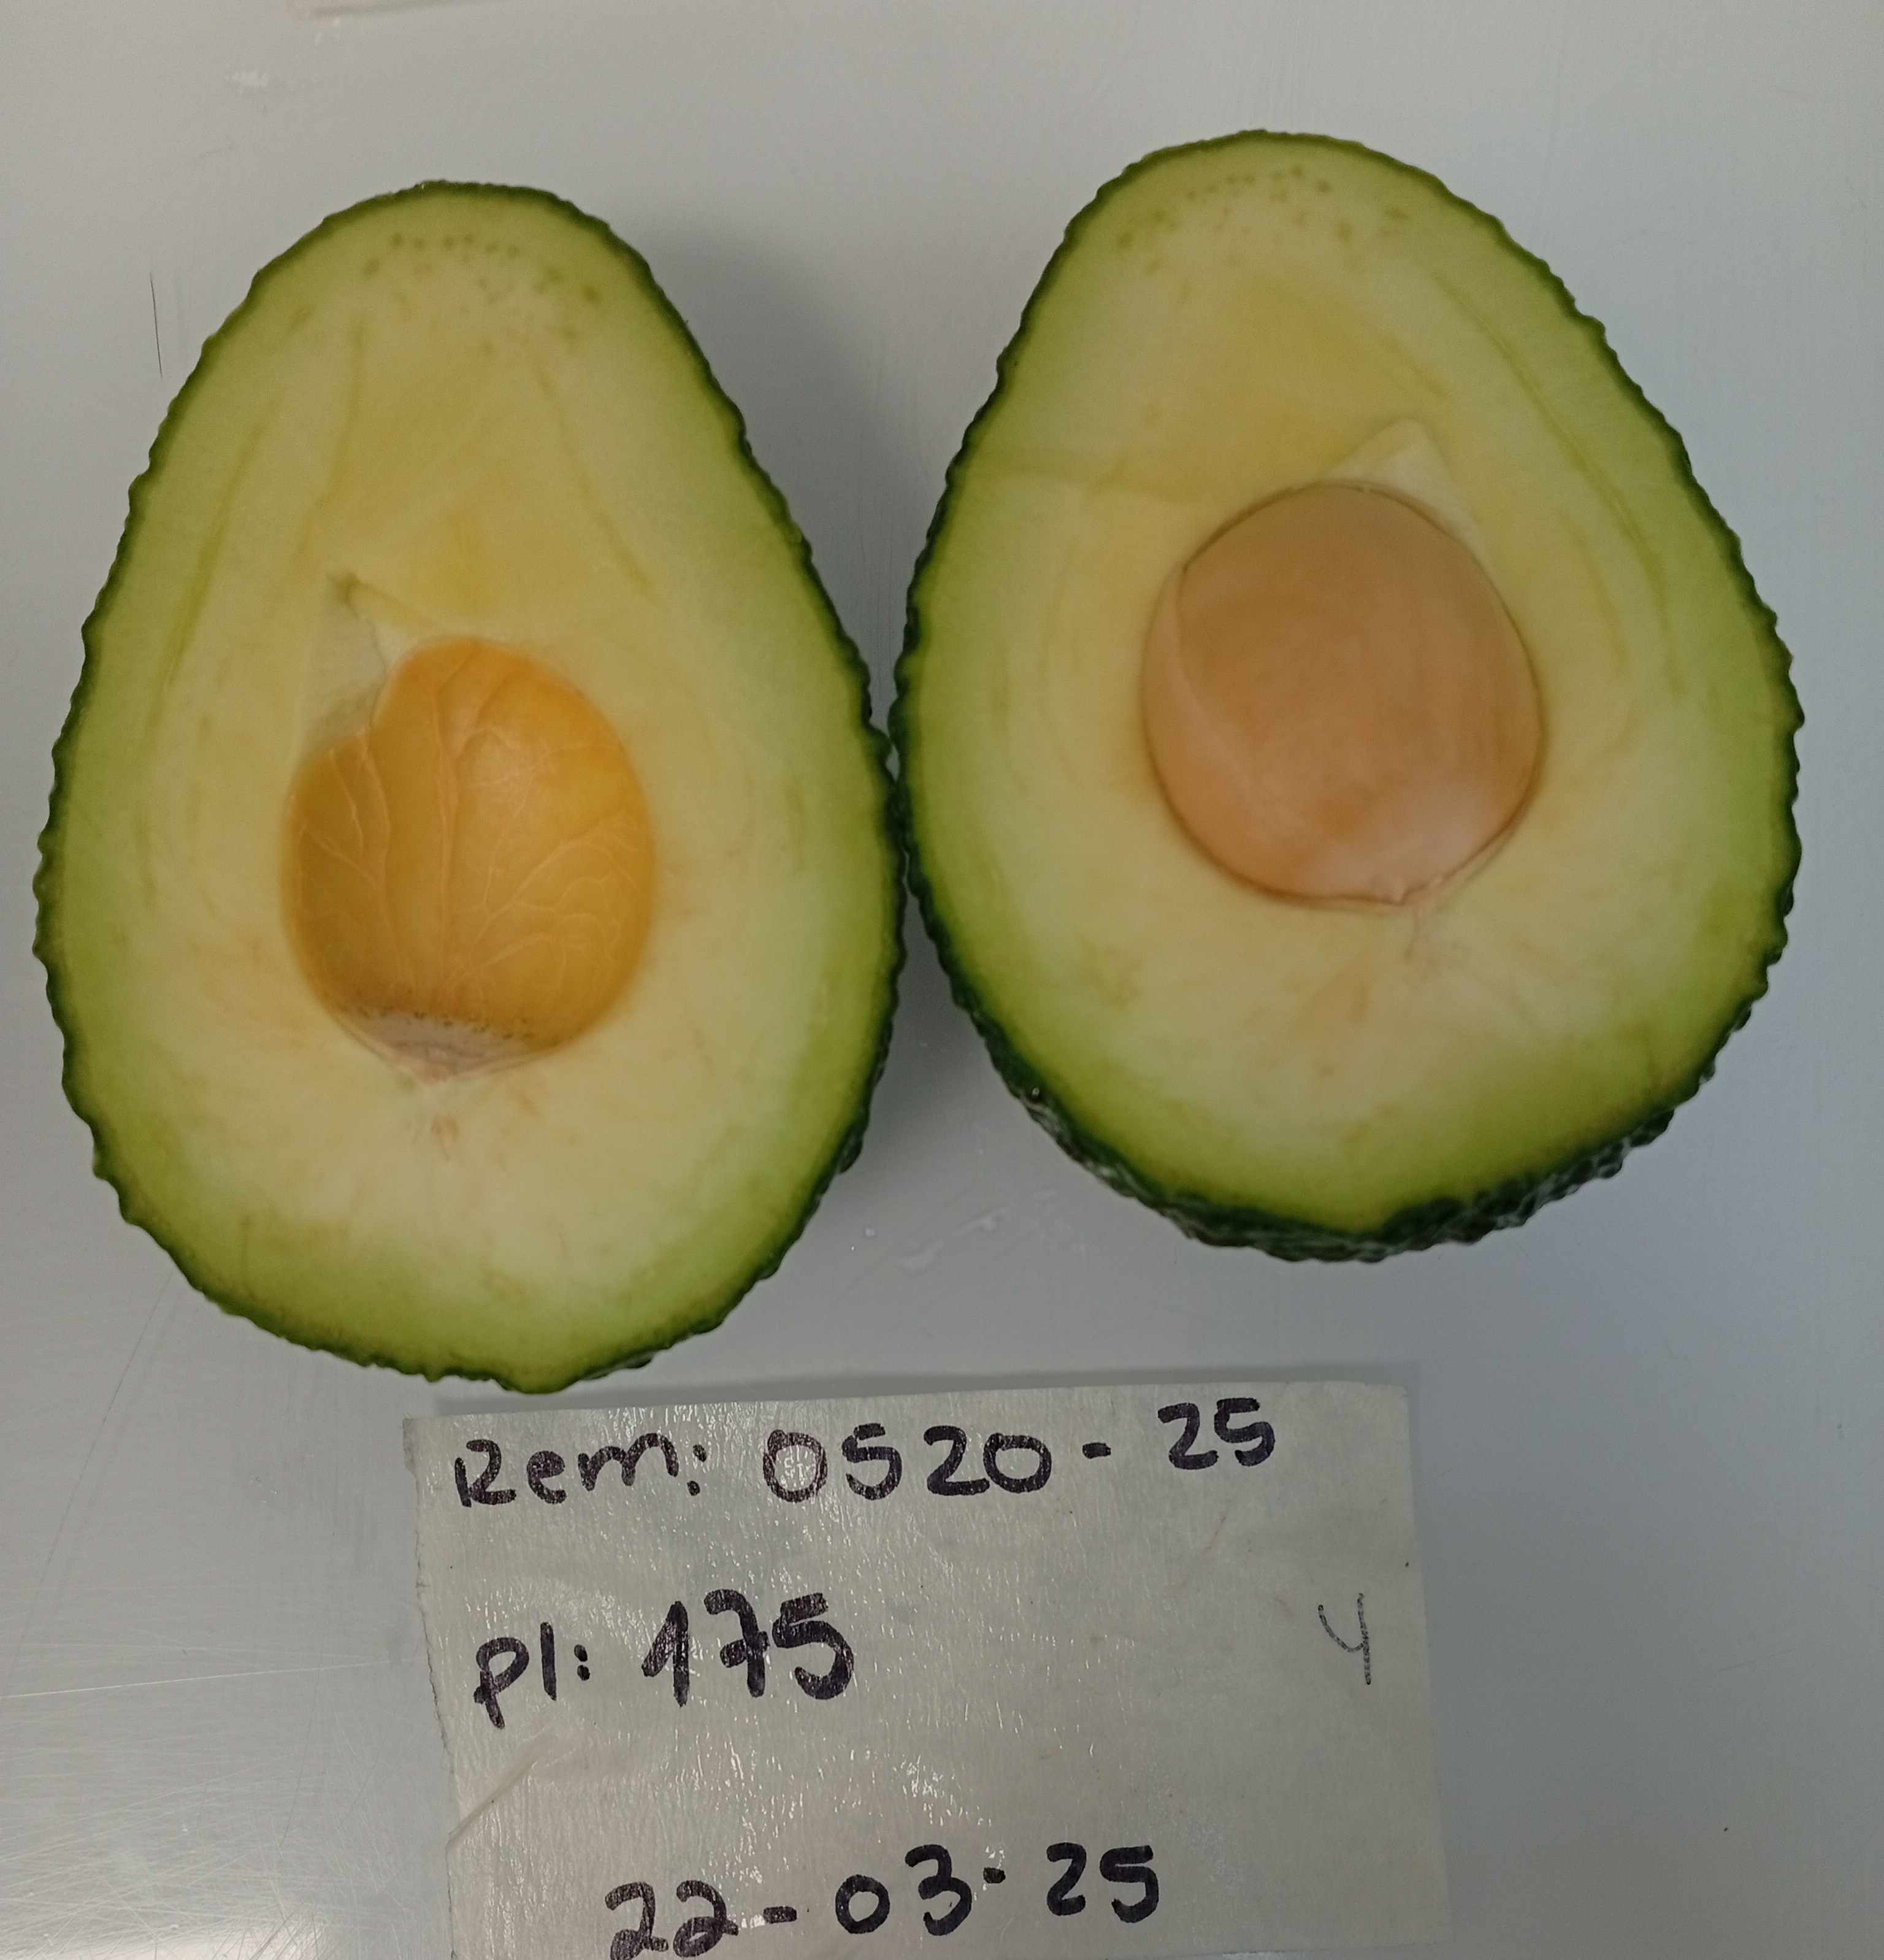 Rem: 0520-25
pl: 175
4
22-03-25